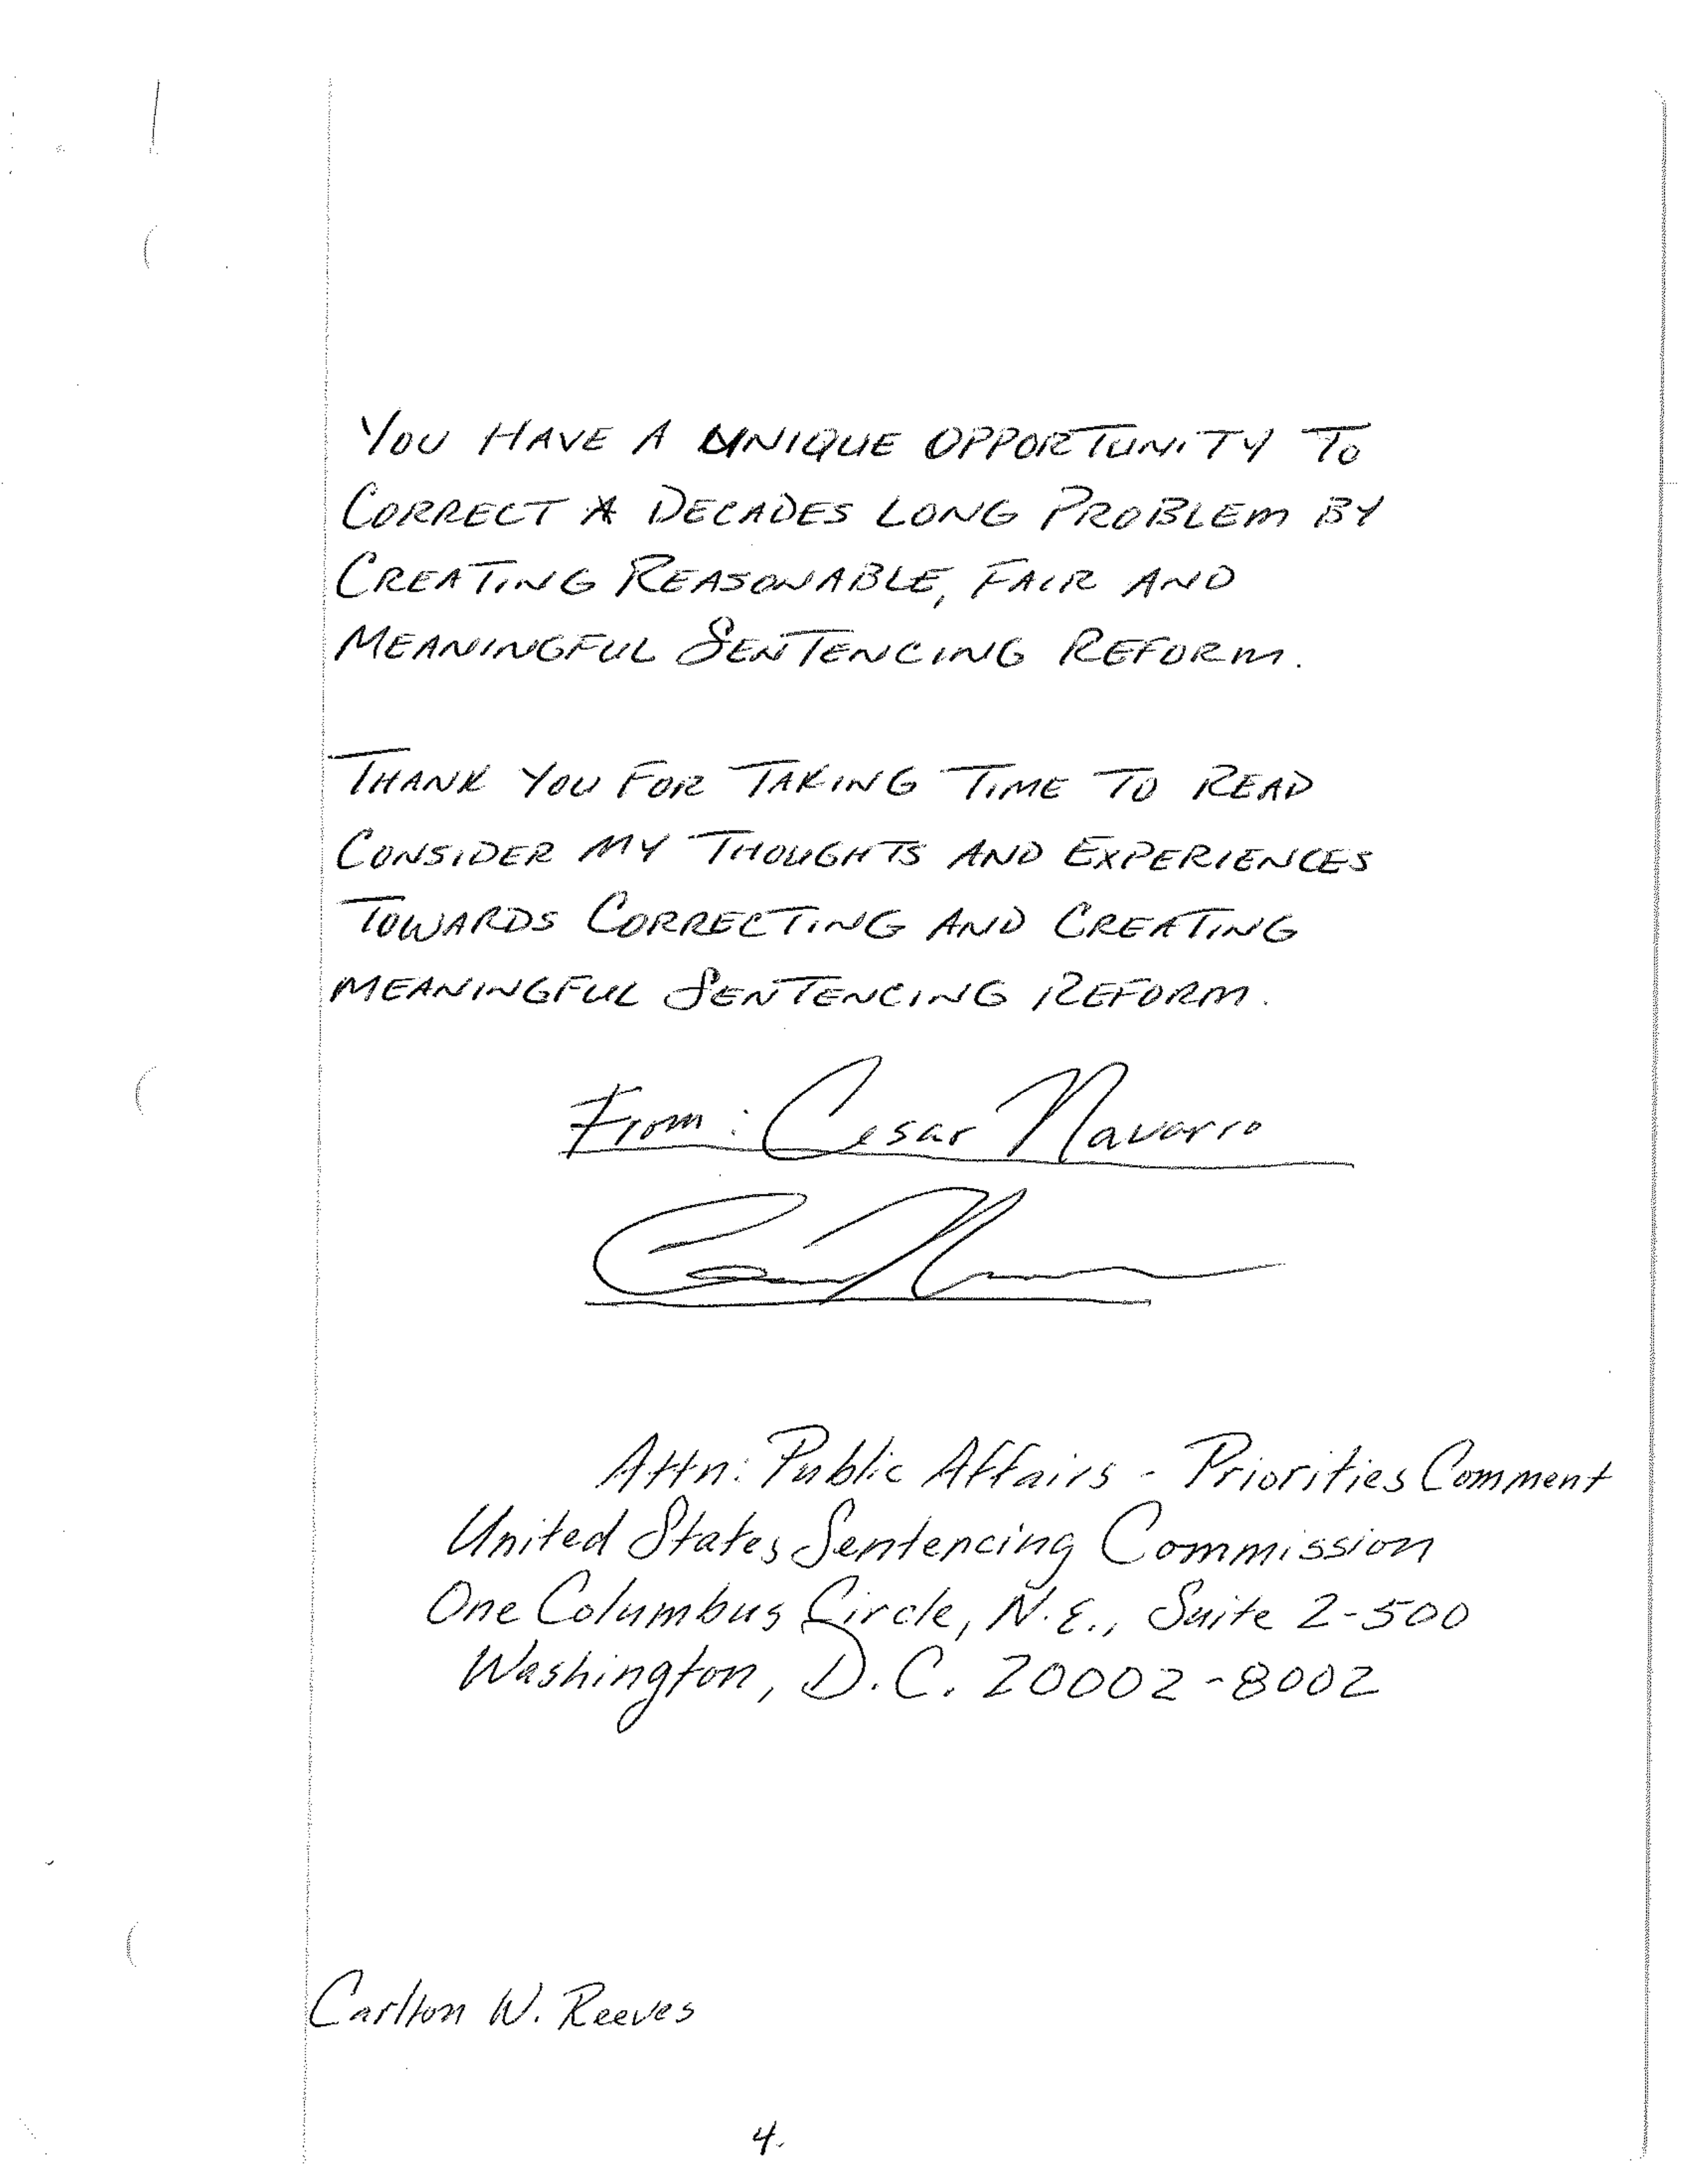 YOU HAVE A UNIQUE OPPORTUNITY TO
CORRECT A DECADES LONG PROBLEM BY
CREATING REASONABLE, FAIR AND
MEANINGFUL SENTENCING REFORM.
THANK YOU FOR TAKING TIME TO READ
CONSIDER MY THOUGHTS AND EXPERIENCES
TOWARDS CORRECTING AND CREATING
MEANINGFUL SENTENCING REFORM.
From: Cesar Navarro
Attn: Public Affairs - Priorities Comment
United States Sentencing Commission
One Columbus Circle, N.E., Suite 2-500
Washington, D.C. 20002-8002
Carlton W. Reeves
4.